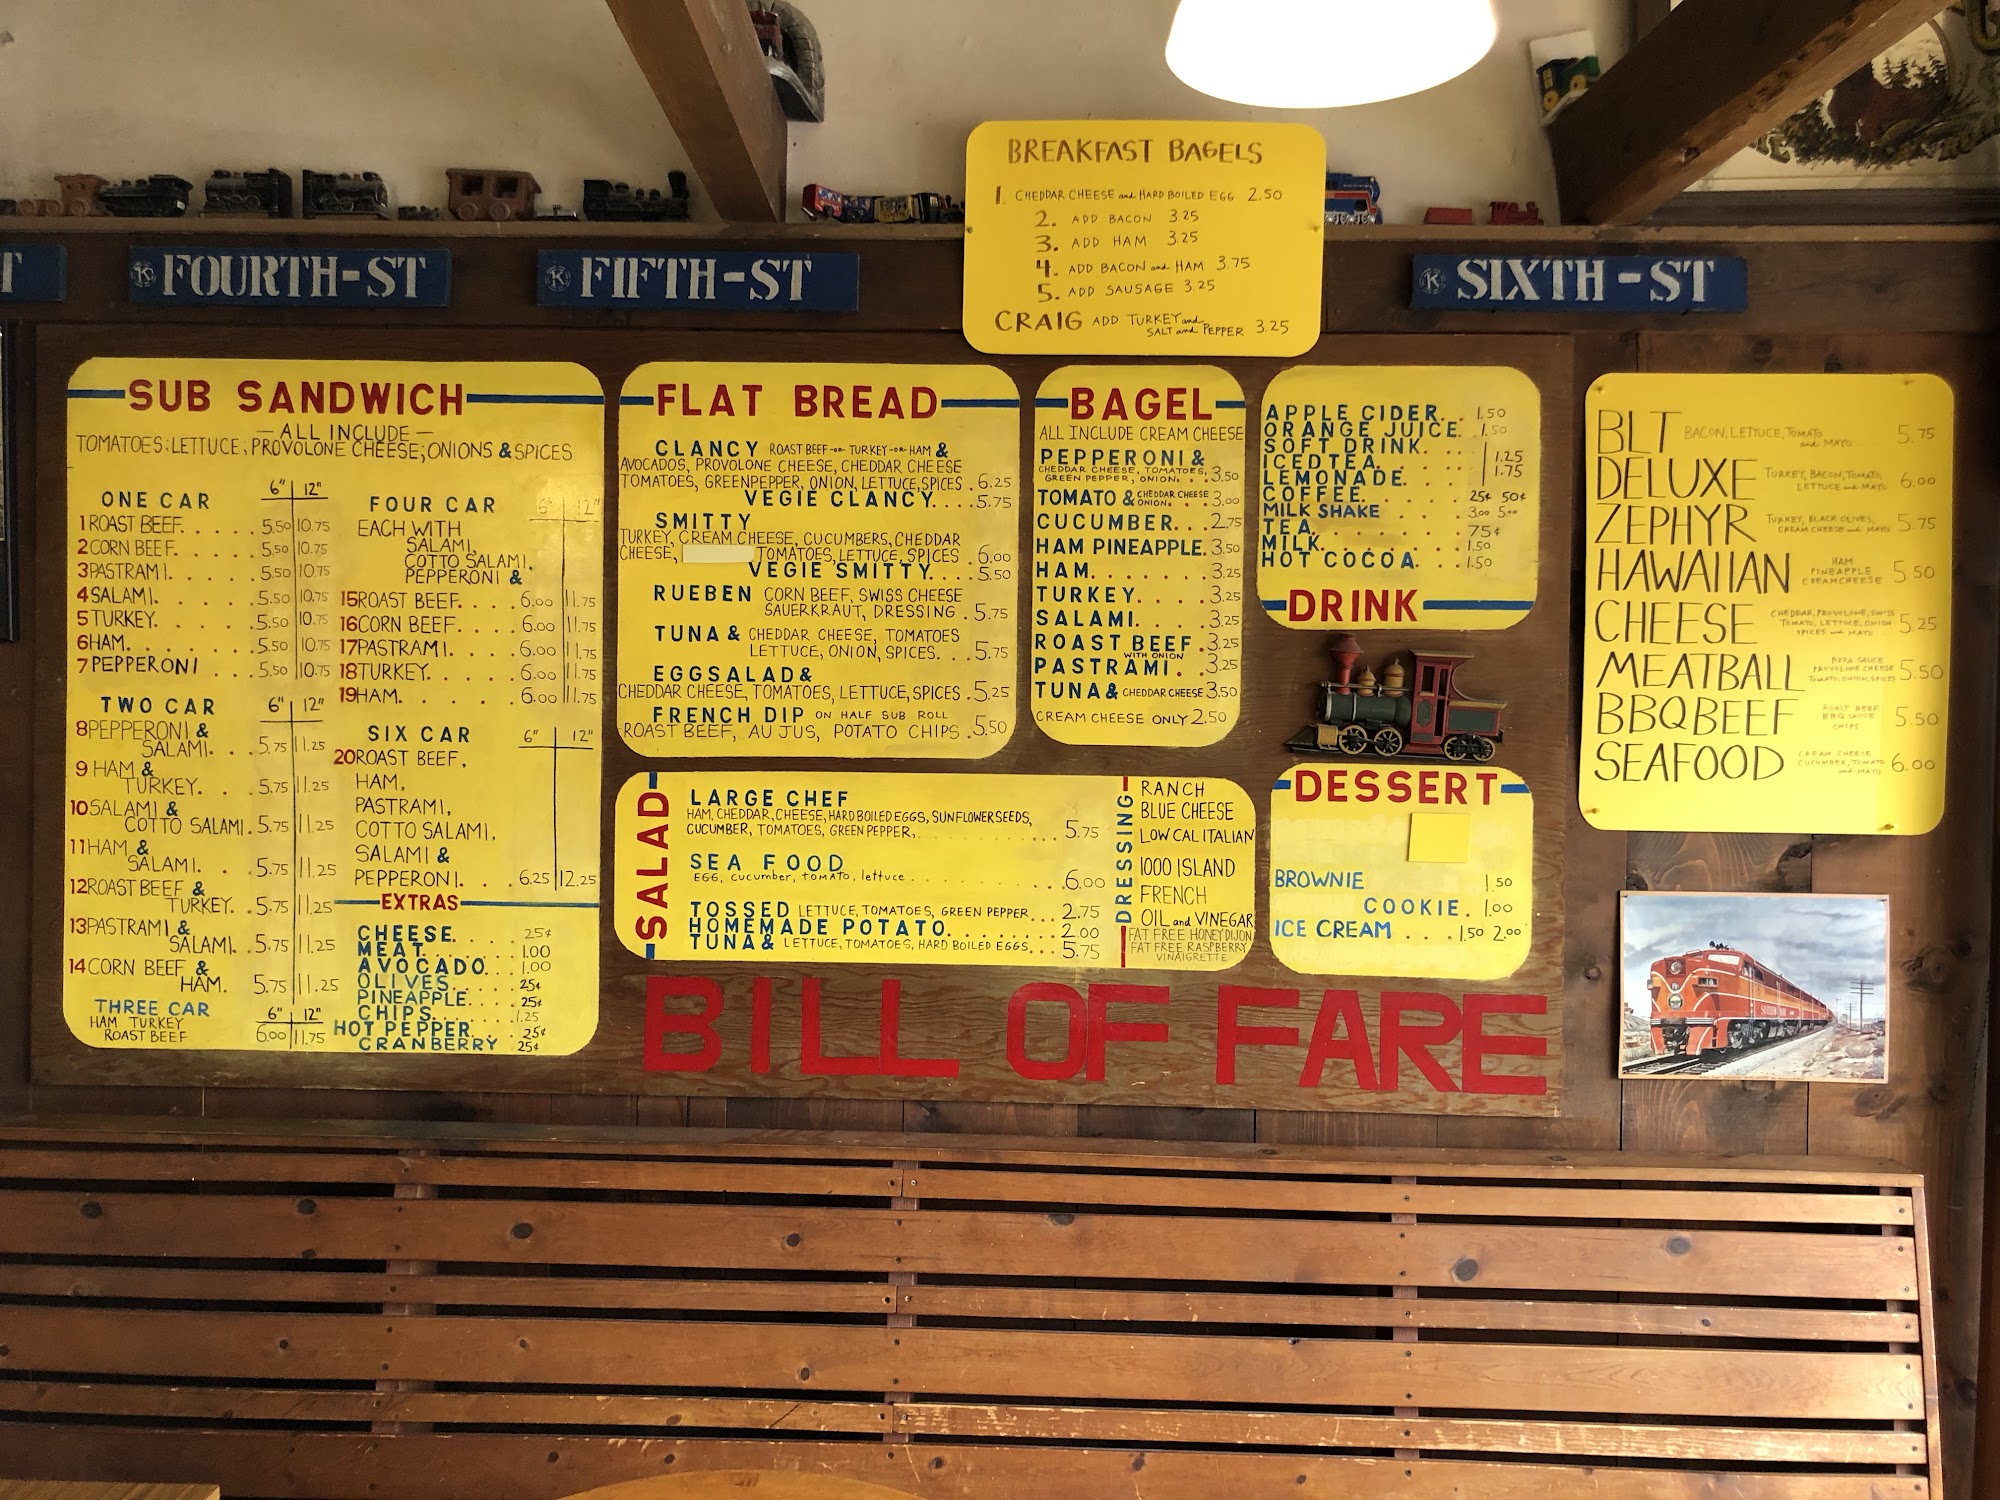 T
FOURTH-ST
FIFTH-ST
SIXTH-ST
BREAKFAST BAGELS
1. CHEDDAR CHEESE and HARD BOILED EGG 2.50
2. ADD BACON 3.25
3. ADD HAM 3.25
4. ADD BACON and HAM 3.75
5. ADD SAUSAGE 3.25
CRAIG ADD TURKEY and
SALT and PEPPER 3.25
SUB SANDWICH
— ALL INCLUDE —
TOMATOES; LETTUCE; PROVOLONE CHEESE; ONIONS & SPICES
ONE CAR 6" 12"
1 ROAST BEEF. . . . . 5.50 10.75
2 CORN BEEF. . . . . 5.50 10.75
3 PASTRAMI. . . . . 5.50 10.75
4 SALAMI. . . . . 5.50 10.75
5 TURKEY. . . . . 5.50 10.75
6 HAM. . . . . 5.50 10.75
7 PEPPERONI . . . . 5.50 10.75
TWO CAR 6" 12"
8 PEPPERONI &
SALAMI. . . 5.75 11.25
9 HAM &
TURKEY. . . 5.75 11.25
10 SALAMI &
COTTO SALAMI. 5.75 11.25
11 HAM &
SALAMI. . . 5.75 11.25
12 ROAST BEEF &
TURKEY. . 5.75 11.25
13 PASTRAMI &
SALAMI. . 5.75 11.25
14 CORN BEEF &
HAM. . 5.75 11.25
THREE CAR 6" 12"
HAM TURKEY
ROAST BEEF 6.00 11.75
FOUR CAR 6" 12"
EACH WITH
SALAMI,
COTTO SALAMI,
PEPPERONI &
15 ROAST BEEF. . . . 6.00 11.75
16 CORN BEEF. . . . 6.00 11.75
17 PASTRAMI. . . . 6.00 11.75
18 TURKEY. . . . . 6.00 11.75
19 HAM. . . . . . 6.00 11.75
SIX CAR 6" 12"
20 ROAST BEEF,
HAM,
PASTRAMI,
COTTO SALAMI,
SALAMI &
PEPPERONI. . . 6.25 12.25
EXTRAS
CHEESE. . . . 25¢
MEAT. . . . . 1.00
AVOCADO. . . 1.00
OLIVES. . . . 25¢
PINEAPPLE. . . . 25¢
CHIPS. . . . . 1.25
HOT PEPPER. . . . 25¢
CRANBERRY 25¢
FLAT BREAD
CLANCY ROAST BEEF -or- TURKEY -or- HAM &
AVOCADOS, PROVOLONE CHEESE, CHEDDAR CHEESE
TOMATOES, GREENPEPPER, ONION, LETTUCE, SPICES . 6.25
VEGIE CLANCY. . . 5.75
SMITTY
TURKEY, CREAM CHEESE, CUCUMBERS, CHEDDAR
CHEESE, TOMATOES, LETTUCE, SPICES . 6.00
VEGIE SMITTY. . . . 5.50
RUEBEN CORN BEEF, SWISS CHEESE
SAUERKRAUT, DRESSING . 5.75
TUNA & CHEDDAR CHEESE, TOMATOES
LETTUCE, ONION, SPICES. . . 5.75
EGGSALAD &
CHEDDAR CHEESE, TOMATOES, LETTUCE, SPICES . 5.25
FRENCH DIP ON HALF SUB ROLL
ROAST BEEF, AU JUS, POTATO CHIPS . 5.50
BAGEL
ALL INCLUDE CREAM CHEESE
PEPPERONI &
CHEDDAR CHEESE, TOMATOES,
GREEN PEPPER, ONION. . . 3.50
TOMATO & CHEDDAR CHEESE
ONION. . 3.00
CUCUMBER. . . 2.75
HAM PINEAPPLE. 3.50
HAM. . . . . . 3.25
TURKEY. . . . 3.25
SALAMI. . . . 3.25
ROAST BEEF . 3.25
WITH ONION
PASTRAMI . . 3.25
TUNA & CHEDDAR CHEESE 3.50
CREAM CHEESE ONLY 2.50
APPLE CIDER. . . 1.50
ORANGE JUICE. . 1.50
SOFT DRINK. . . .
ICED TEA. . . . . 1.25
LEMONADE. . . . 1.75
COFFEE. . . . . 25¢ 50¢
MILK SHAKE 3.00 5.00
TEA. . . . . . . 75¢
MILK. . . . . . 1.50
HOT COCOA. . . . 1.50
DRINK
SALAD
LARGE CHEF
HAM, CHEDDAR, CHEESE, HARD BOILED EGGS, SUNFLOWER SEEDS,
CUCUMBER, TOMATOES, GREEN PEPPER, . . . 5.75
SEA FOOD
EGG, cucumber, tomato, lettuce . . . 6.00
TOSSED LETTUCE, TOMATOES, GREEN PEPPER. . . 2.75
HOMEMADE POTATO. . . . . 2.00
TUNA & LETTUCE, TOMATOES, HARD BOILED EGGS. . . 5.75
DRESSING
RANCH
BLUE CHEESE
LOW CAL ITALIAN
1000 ISLAND
FRENCH
OIL and VINEGAR
FAT FREE HONEY DIJON
FAT FREE RASPBERRY
VINAIGRETTE
DESSERT
BROWNIE 1.50
COOKIE. 1.00
ICE CREAM . . . . 1.50 2.00
BILL OF FARE
BLT BACON, LETTUCE, TOMATO
and MAYO 5.75
DELUXE TURKEY, BACON, TOMATO,
LETTUCE and MAYO 6.00
ZEPHYR TURKEY, BLACK OLIVES,
CREAM CHEESE and MAYO 5.75
HAWAIIAN HAM
PINEAPPLE
CREAM CHEESE 5.50
CHEESE CHEDDAR, PROVOLONE, SWISS
TOMATO, LETTUCE, ONION
SPICES and MAYO 5.25
MEATBALL PIZZA SAUCE
PROVOLONE CHEESE
TOMATO, ONION, SPICES 5.50
BBQ BEEF ROAST BEEF
BBQ SAUCE
CHIPS 5.50
SEAFOOD CREAM CHEESE
CUCUMBER, TOMATO
and MAYO 6.00